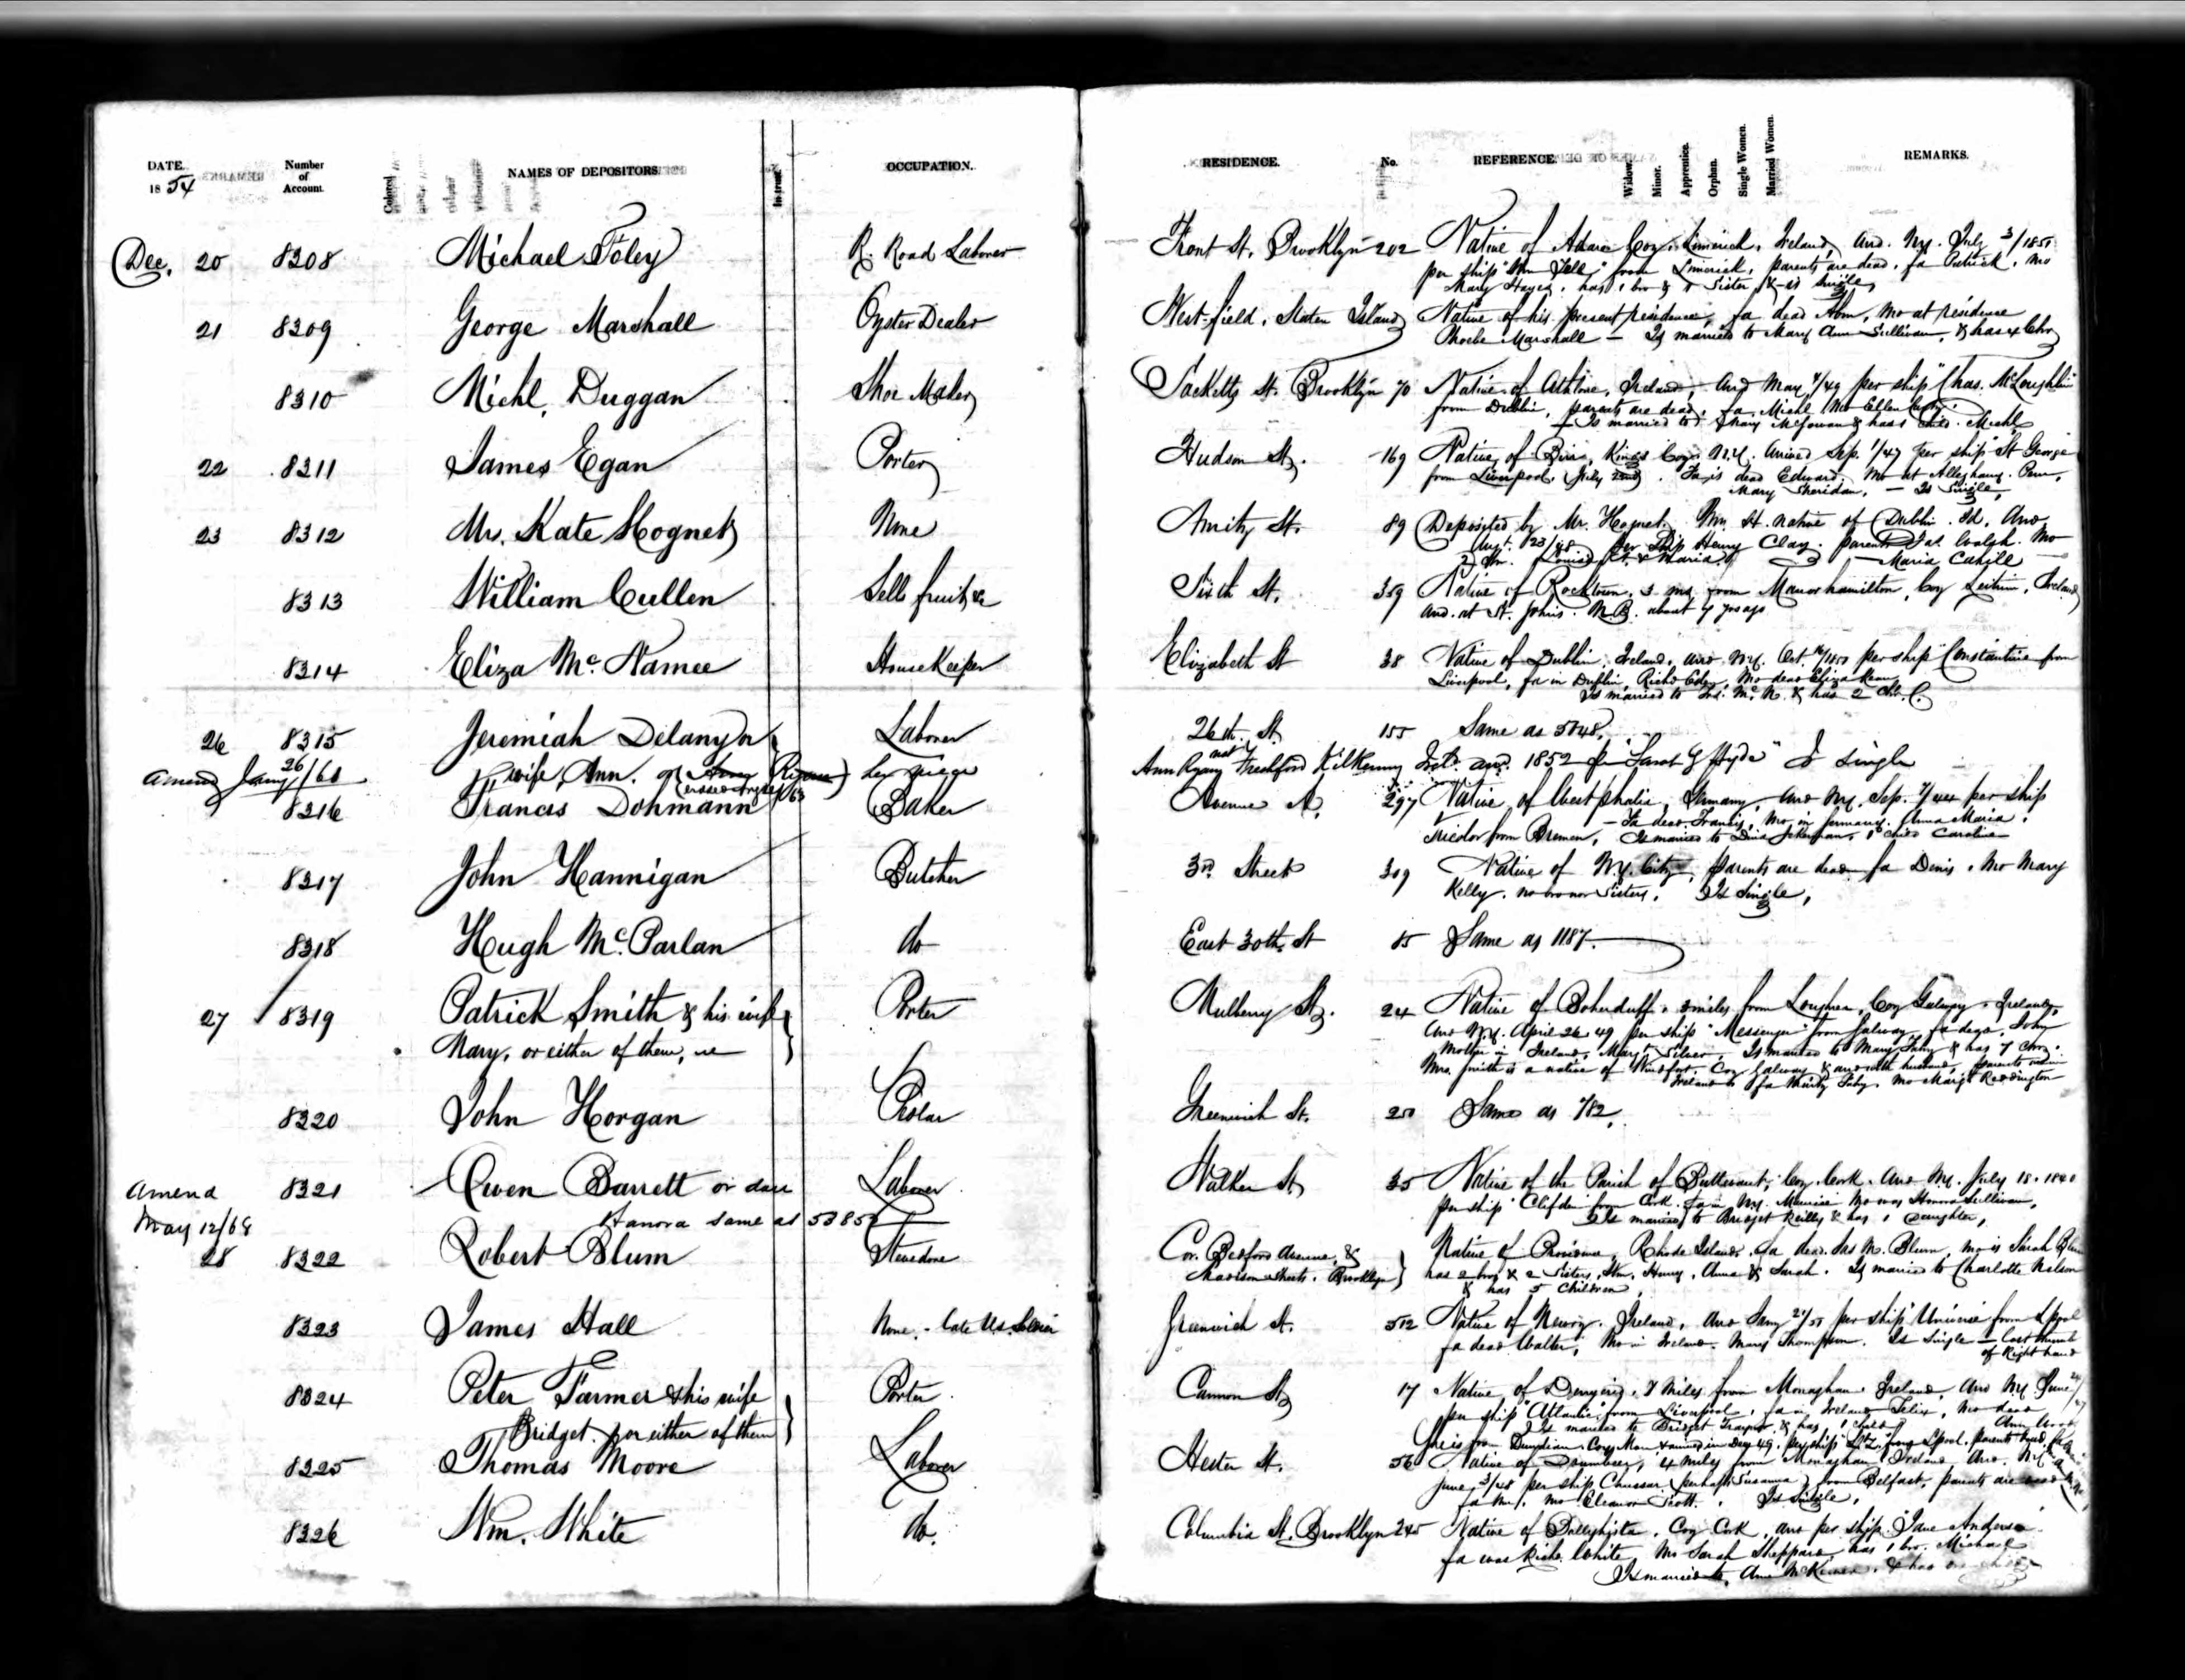 DATE. 1854
Number of Account.
Colored
NAMES OF DEPOSITORS.
In trust.
OCCUPATION.
RESIDENCE.
No.
REFERENCE.
Widow.
Minor.
Apprentice.
Orphan.
Single Women.
Married Women.
REMARKS.
Dec. 20 8308 Michael Foley R. Road Laborer Front St. Brooklyn 202 Native of Adare Coy. Limerick, Ireland, arrd. N.Y. July 3/1851
per ship "Wm Tell" from Limerick, parents are dead, fa Patrick, Mo
Mary Hayes, has 1 bro & 1 Sister, & is single
21 8309 George Marshall Oyster Dealer West-field, Staten Island Native of his present residence, fa dead Abm, Mo at residence
Phoebe Marshall — Is married to Mary Ann Sullivan, & has 4 Chn
8310 Michl. Duggan Shoe Maker Sacketts St. Brooklyn 70 Native of Athlone, Ireland, Arrd May 4/49 per ship "Chas. McLoughlin"
from Dublin, parents are dead, fa. Michl Mo Ellen
Is married to Mary McGowan & has 1 child. Michl
22 8311 James Egan Porter Hudson St. 169 Native of Birr, Kings Coy. N.Y. Arrived Sep. 1/47 per ship "St George
from Liverpool. (July 2nd). Fa is dead Edward. Mo at Alleghany. Penn,
Mary Sheridan, — Is Single,
23 8312 Mrs. Kate Hognet None Amity St. 89 Deposited by Mr. Hognet. Wm. H. native of Dublin. Id. Arrd
Augt. 23/48 per Ship Henry Clay. parents Jas. Walsh. Mo
Maria Cahill
8313 William Cullen Sells fruit, &c Sixth St. 359 Native of Rocktown, 3 mls from Manorhamilton, Coy Leitrim, Ireland
arrd. at St. Johns. N.B. about 7 yrs ago
8314 Eliza McNamee HouseKeeper Elizabeth St 38 Native of Dublin, Ireland, arrd N.Y. Oct. per ship "Constantine from
Liverpool, fa in Dublin, Richd Mo dead Eliza
Is married to McN. & has 2 Chn.
26 8315 Jeremiah Delany or Laborer 26th. St. 155 Same as 5748.
Amend Jany 26/60 wife, Ann. or Ann Ryan) Ann Ryan nat Freshford Kilkenny Irel. arr. 1852 pr "Sarah G Hyde" Is single
8316 Francis Dohmann Baker Avenue A. 297 Native of Westphalia, Germany, Arrd N.Y. Sep. 7/44 per ship
— Fa dead Francis, Mo. in Germany. Anna Maria.
from Bremen, Is married to Dina 1 child Caroline
8317 John Hannigan Butcher 3rd. Street 309 Native of N.Y. City, parents are dead fa Denis, Mo Mary
Kelly. no bro nor Sisters, Is Single,
8318 Hugh McParlan do East 30th. St 85 Same as 1187.
27 8319 Patrick Smith & his wife Porter Mulberry St. 24 Native of Boherduff, 3 miles from Loughrea, Coy Galway, Ireland,
Mary, or either of them, Arrd N.Y. April 26 49 per ship "Messenger" from Galway, fa dead, John
Mother in Ireland, Mary Silver. Is married to Mary Fahy & has 7 Chn.
Mrs. Smith is a native of Coy Galway & arrd with husband, parents
Ireland fa Fahy. Mo Margt Reddington
8320 John Horgan Pedlar Greenwich St. 250 Same as 782.
Amend 8321 Owen Barrett or daur Laborer Walker St 35 Native of the Parish of Buttevant, Coy. Cork. Arrd N.Y. July 18. 1840
May 12/68 Hanora same as per ship "Clifden" from Cork. Fa in N.Y. Maurice Mo was Honora Sullivan,
Is married to Bridget Reilly & has 1 Daughter,
28 8322 Robert Blum Stevedore Cor. Bedford Avenue, & Madison Streets. Brooklyn Native of Providence, Rhode Island. Fa dead Jas M. Blum, mo is Sarah Blum
has 2 bros & 2 Sisters, Wm. Henry, Anna & Sarah. Is married to Charlotte Nelson
& has 5 Children,
8323 James Hall None. - late U.S. Soldier Greenwich St. 512 Native of Newry. Ireland, Arrd Jany 21/51 per ship "Universe from L'pool
fa dead Walter, Mo in Ireland. Mary Thompson. Is Single — Lost thumb
of Right hand
8324 Peter Farmer & his wife Porter Cannon St 17 Native of 7 Miles from Monaghan. Ireland, Arrd N.Y. June
Bridget, or either of them per ship "Atlantic" from Liverpool, fa in Ireland Felix, Mo dead
Is married to Bridget Traynor & has 1 Child Ann
8325 Thomas Moore Laborer Hester St. 56 Native of Drumbeer, 4 miles from Monaghan Ireland Arrd. N.Y.
June 3/48 per ship (perhaps Susanna) from Belfast, parents are dead
fa Wm. Mo Eleanor Scott. Is Single,
8326 Wm. White do. Columbia St. Brooklyn 245 Native of Coy Cork, arrd per ship Jane Anderson
fa was Richd. White, Mo Sarah Sheppard has 1 bro. Michael
Is married to, Ann & has